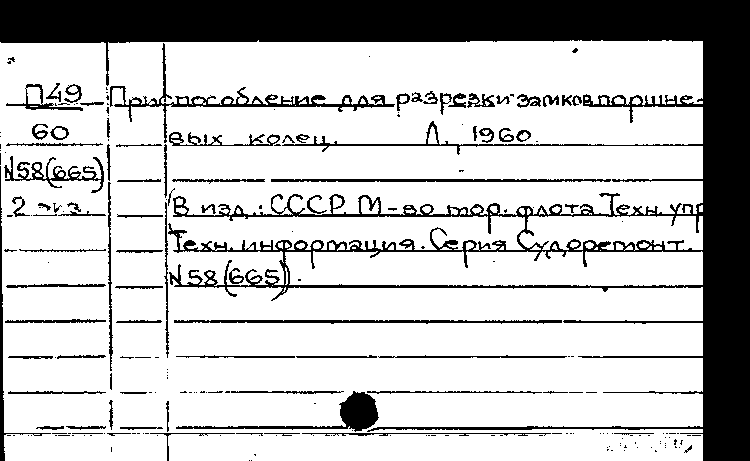 П49 Приспособление для разрезки замков поршне-
60 вых колец. Л., 1960.
N58(665)
2 экз. (В изд.: СССР. М-во мор. флота. Техн. упр
Техн. информация. Серия Судоремонт.
N58(665)).